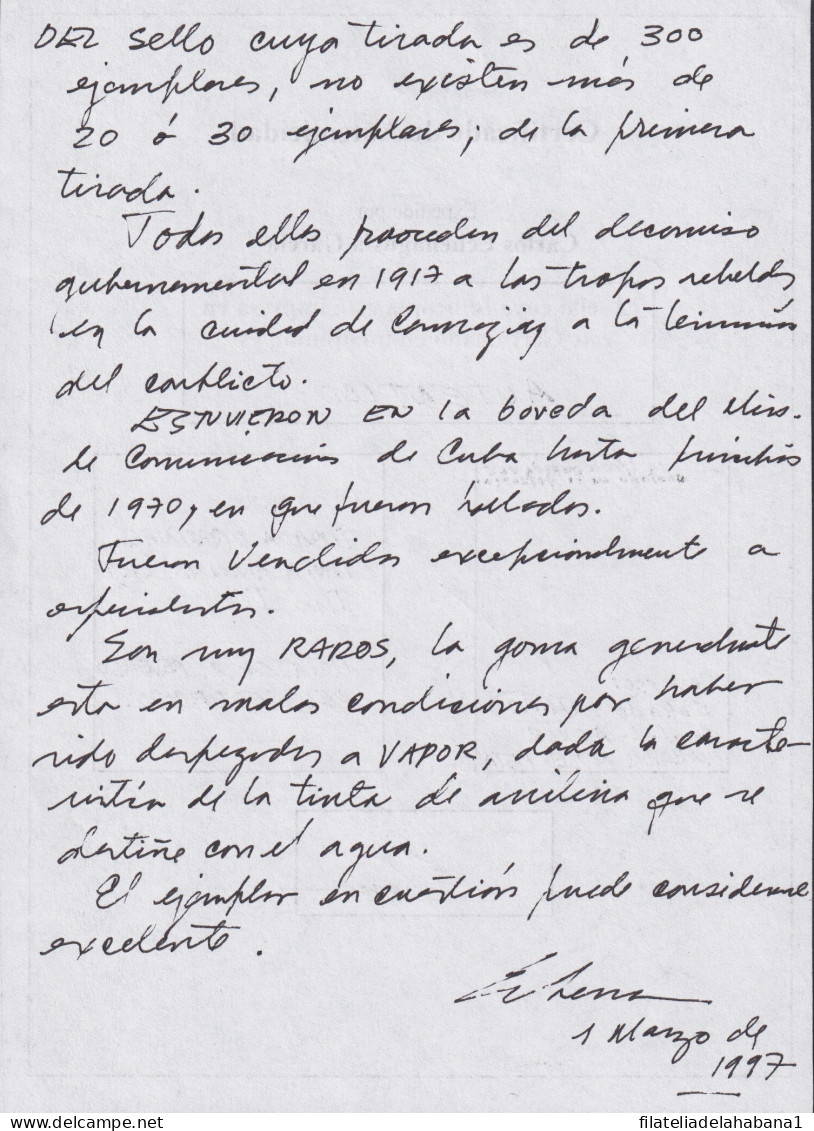 DEL sello cuya tirada es de 300
ejemplares, no existen más de
20 ó 30 ejemplares, de la primera
tirada.
Todos ellos proceden del decomiso
gubernamental en 1917 a las tropas rebeldes
en la ciudad de Camagüey a la
del conflicto.
ESTUVIERON EN la boveda del Minis.
de Comunicaciones de Cuba hasta principios
de 1970, en que fueron hallados.
Fueron vendidos excepcionalmente a
especialistas.
Son muy RAROS, la goma generalmente
esta en malas condiciones por haber
sido despegados a VAPOR, dada la caracte-
rística de la tinta de anilina que se
destiñe con el agua.
El ejemplar en cuestión puede considerarse
excelente.
1 Marzo de
1997
filateliadelahabana1